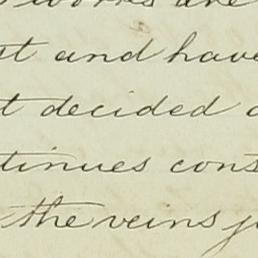 works are
and have
decided
tinues cons
the veins